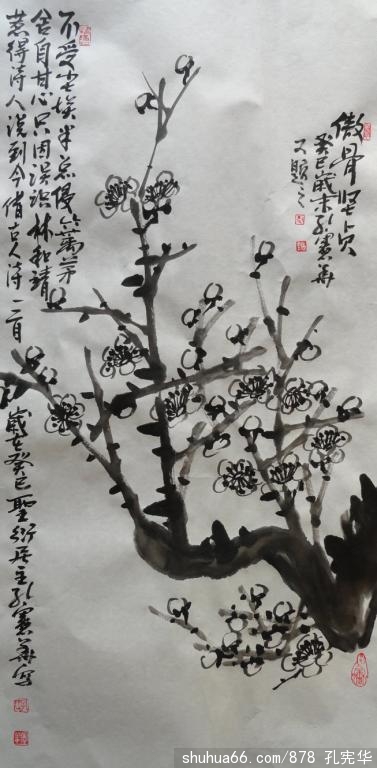 傲骨坚贞
癸巳歲末孔憲華
又题之
不受尘埃半点侵竹篱茅
舍自甘心只因误识林和靖
惹得诗人说到今借古人诗一首
歲在癸巳聖衍居主孔憲華写
shuhua66.com/878 孔宪华